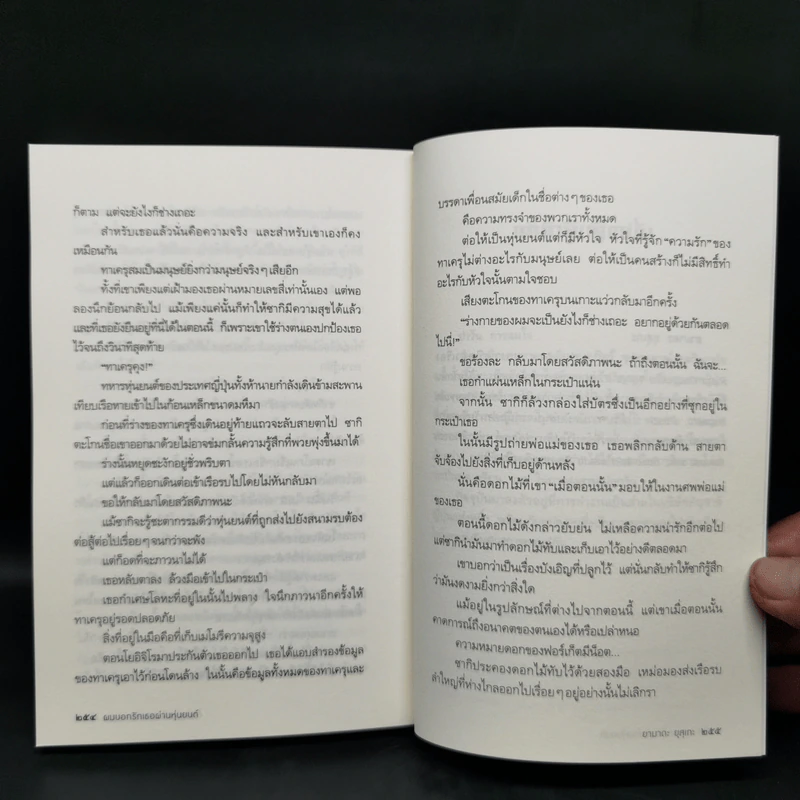 ก็ตาม แต่จะยังไงก็ช่างเถอะ
สำหรับเธอแล้วนั่นคือความจริง และสำหรับเขาเองก็คง
เหมือนกัน
ทาเครุสมเป็นมนุษย์ยิ่งกว่ามนุษย์จริงๆ เสียอีก
ทั้งที่เขาเพียงแต่เฝ้ามองเธอผ่านหมายเลขสี่เท่านั้นเอง แต่พอ
ลองนึกย้อนกลับไป แม้เพียงแค่นั้นก็ทำให้ซากิมีความสุขได้แล้ว
และที่เธอยังยืนอยู่ที่นี่ได้ในตอนนี้ ก็เพราะเขาใช้ร่างตนเองปกป้องเธอ
ไว้จนถึงวินาทีสุดท้าย
“ทาเครุคุง!”
ทหารหุ่นยนต์ของประเทศญี่ปุ่นทั้งห้านายกำลังเดินข้ามสะพาน
เทียบเรือหายเข้าไปในก้อนเหล็กขนาดมหึมา
ก่อนที่ร่างของทาเครุซึ่งเดินอยู่ท้ายแถวจะลับสายตาไป ซากิ
ตะโกนชื่อเขาออกมาด้วยไม่อาจข่มกลั้นความรู้สึกที่พวยพุ่งขึ้นมาได้
ร่างนั้นหยุดชะงักอยู่ชั่วพริบตา
แต่แล้วก็ออกเดินต่อเข้าเรือรบไปโดยไม่หันกลับมา
ขอให้กลับมาโดยสวัสดิภาพนะ
แม้ซากิจะรู้ชะตากรรมดีว่าหุ่นยนต์ที่ถูกส่งไปยังสนามรบต้อง
ต่อสู้ต่อไปเรื่อยๆ จนกว่าจะพัง
แต่ก็อดที่จะภาวนาไม่ได้
เธอหลับตาลง ล้วงมือเข้าไปในกระเป๋า
เธอกำเศษโลหะที่อยู่ในนั้นไปพลาง ใจนึกภาวนาอีกครั้งให้
ทาเครุอยู่รอดปลอดภัย
สิ่งที่อยู่ในมือคือที่เก็บเมโมรีความจุสูง
ตอนโยอิจิโรมาประกันตัวเธอออกไป เธอได้แอบสำรองข้อมูล
ของทาเครุเอาไว้ก่อนโดนล้าง ในนั้นคือข้อมูลทั้งหมดของทาเครุและ
๒๕๔ ผมบอกรักเธอผ่านหุ่นยนต์
บรรดาเพื่อนสมัยเด็กในชื่อต่างๆ ของเธอ
คือความทรงจำของพวกเราทั้งหมด
ต่อให้เป็นหุ่นยนต์แต่ก็มีหัวใจ หัวใจที่รู้จัก “ความรัก” ของ
ทาเครุไม่ต่างอะไรกับมนุษย์เลย ต่อให้เป็นคนสร้างก็ไม่มีสิทธิ์ทำ
อะไรกับหัวใจนั้นตามใจชอบ
เสียงตะโกนของทาเครุบนเกาะแว่วกลับมาอีกครั้ง
“ร่างกายของผมจะเป็นยังไงก็ช่างเถอะ อยากอยู่ด้วยกันตลอด
ไปนี่!”
ขอร้องละ กลับมาโดยสวัสดิภาพนะ ถ้าถึงตอนนั้น ฉันจะ...
เธอกำแผ่นเหล็กในกระเป๋าแน่น
จากนั้น ซากิก็ล้วงกล่องใส่บัตรซึ่งเป็นอีกอย่างที่ซุกอยู่ใน
กระเป๋าเธอ
ในนั้นมีรูปถ่ายพ่อแม่ของเธอ เธอพลิกกลับด้าน สายตา
จับจ้องไปยังสิ่งที่เก็บอยู่ด้านหลัง
นั่นคือดอกไม้ที่เขา “เมื่อตอนนั้น” มอบให้ในงานศพพ่อแม่
ของเธอ
ตอนนี้ดอกไม้ดังกล่าวยับย่น ไม่เหลือความน่ารักอีกต่อไป
แต่ซากินำมันมาทำดอกไม้ทับและเก็บเอาไว้อย่างดีตลอดมา
เขาบอกว่าเป็นเรื่องบังเอิญที่ปลูกไว้ แต่นั่นกลับทำให้ซากิรู้สึก
ว่ามันงดงามยิ่งกว่าสิ่งใด
แม้อยู่ในรูปลักษณ์ที่ต่างไปจากตอนนี้ แต่เขาเมื่อตอนนั้น
คาดการณ์ถึงอนาคตของตนเองได้หรือเปล่าหนอ
ความหมายดอกของฟอร์เก็ตมีน็อต...
ซากิประคองดอกไม้ทับไว้ด้วยสองมือ เหม่อมองส่งเรือรบ
ลำใหญ่ที่ห่างไกลออกไปเรื่อยๆ อยู่อย่างนั้นไม่เลิกรา
ยามาดะ ยุสุเกะ ๒๕๕